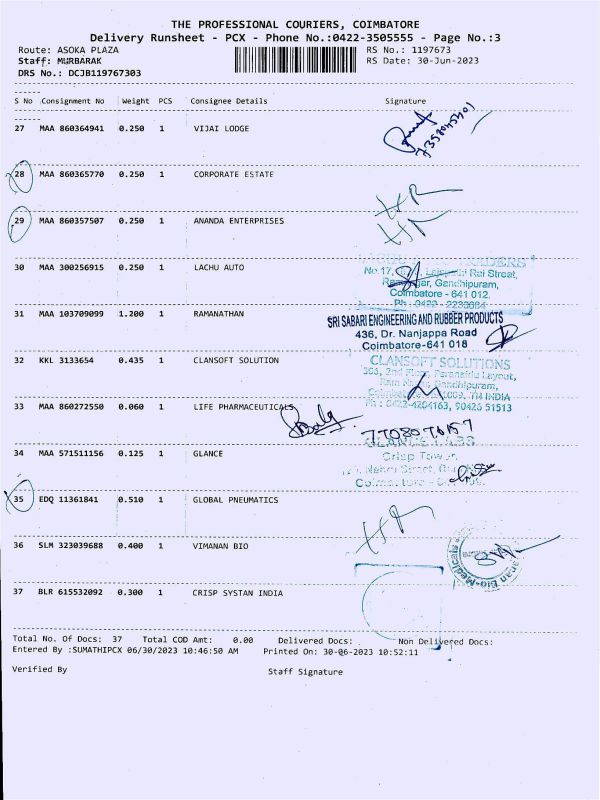 THE PROFESSIONAL COURIERS, COIMBATORE
Delivery Runsheet - PCX - Phone No.:0422-3505555 - Page No.:3
Route: ASOKA PLAZA RS No.: 1197673
Staff: MURBARAK RS Date: 30-Jun-2023
DRS No.: DCJB119767303
S No Consignment No Weight PCS Consignee Details Signature
27 MAA 860364941 0.250 1 VIJAI LODGE
28 MAA 860365770 0.250 1 CORPORATE ESTATE
29 MAA 860357507 0.250 1 ANANDA ENTERPRISES
TRADERS
30 MAA 300256915 0.250 1 LACHU AUTO
No.17, Rai Street,
Gandhipuram,
Coimbatore - 641 012.
31 MAA 103709099 1.200 1 RAMANATHAN
SRI SABARI ENGINEERING AND RUBBER PRODUCTS
436, Dr. Nanjappa Road
Coimbatore-641 018
32 KKL 3133654 0.435 1 CLANSOFT SOLUTION
CLANSOFT SOLUTIONS
306, 2nd Floor, Layout,
Gandhipuram,
INDIA
Ph : 0422-4204163, 90426 51513
33 MAA 860272550 0.060 1 LIFE PHARMACEUTICALS
34 MAA 571511156 0.125 1 GLANCE
Crisp Tower,
35 EDQ 11361841 0.510 1 GLOBAL PNEUMATICS
36 SLM 323039688 0.400 1 VIMANAN BIO
37 BLR 615532092 0.300 1 CRISP SYSTAN INDIA
Total No. Of Docs: 37 Total COD Amt: 0.00 Delivered Docs: Non Delivered Docs:
Entered By :SUMATHIPCX 06/30/2023 10:46:50 AM Printed On: 30-06-2023 10:52:11
Verified By Staff Signature